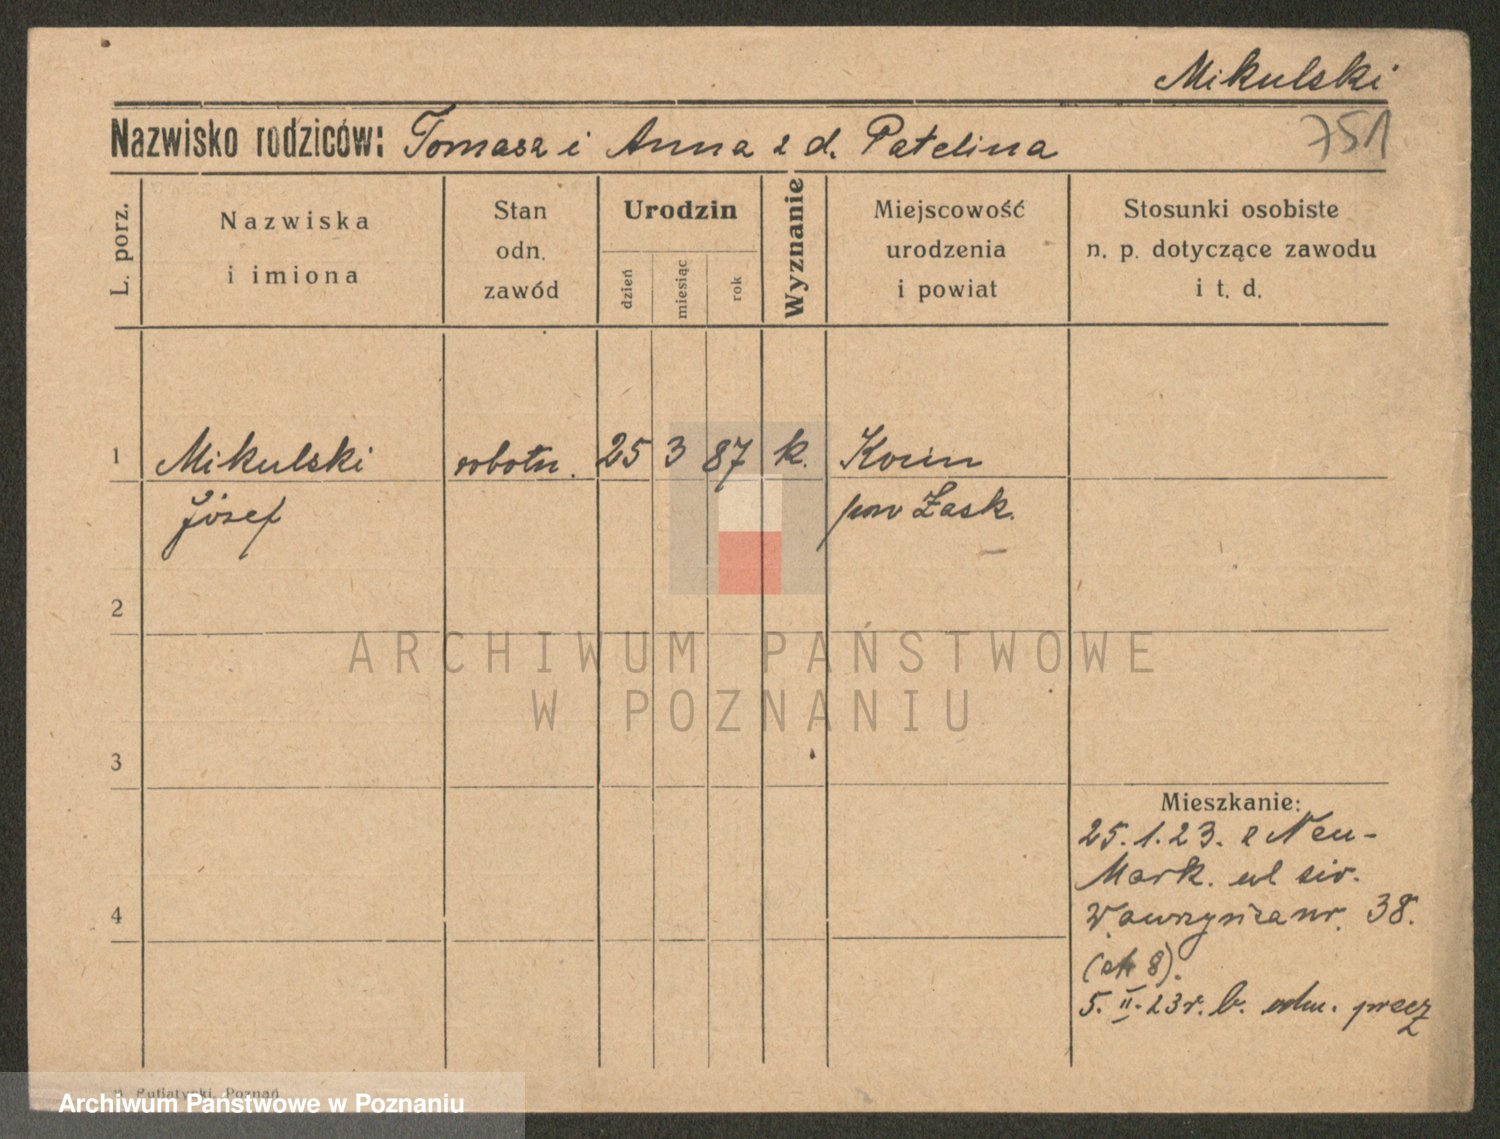 Mikulski
751
Nazwisko rodziców: Tomasz i Anna z d. Patelina
L. porz.
Nazwiska i imiona
Stan odn. zawód
Urodzin
dzień
miesiąc
rok
Wyznanie
Miejscowość urodzenia i powiat
Stosunki osobiste n. p. dotyczące zawodu i t. d.
1 Mikulski robotn. 25 3 87 k.
Józef pow Łask.
2
ARCHIWUM PAŃSTWOWE
W POZNANIU
3
Mieszkanie:
25. 1. 23. z Neu-
Mark. ul św.
4
Wawrzyńca nr. 38.
5. II. 23 r. b. odm. precz
Poznań
Archiwum Państwowe w Poznaniu